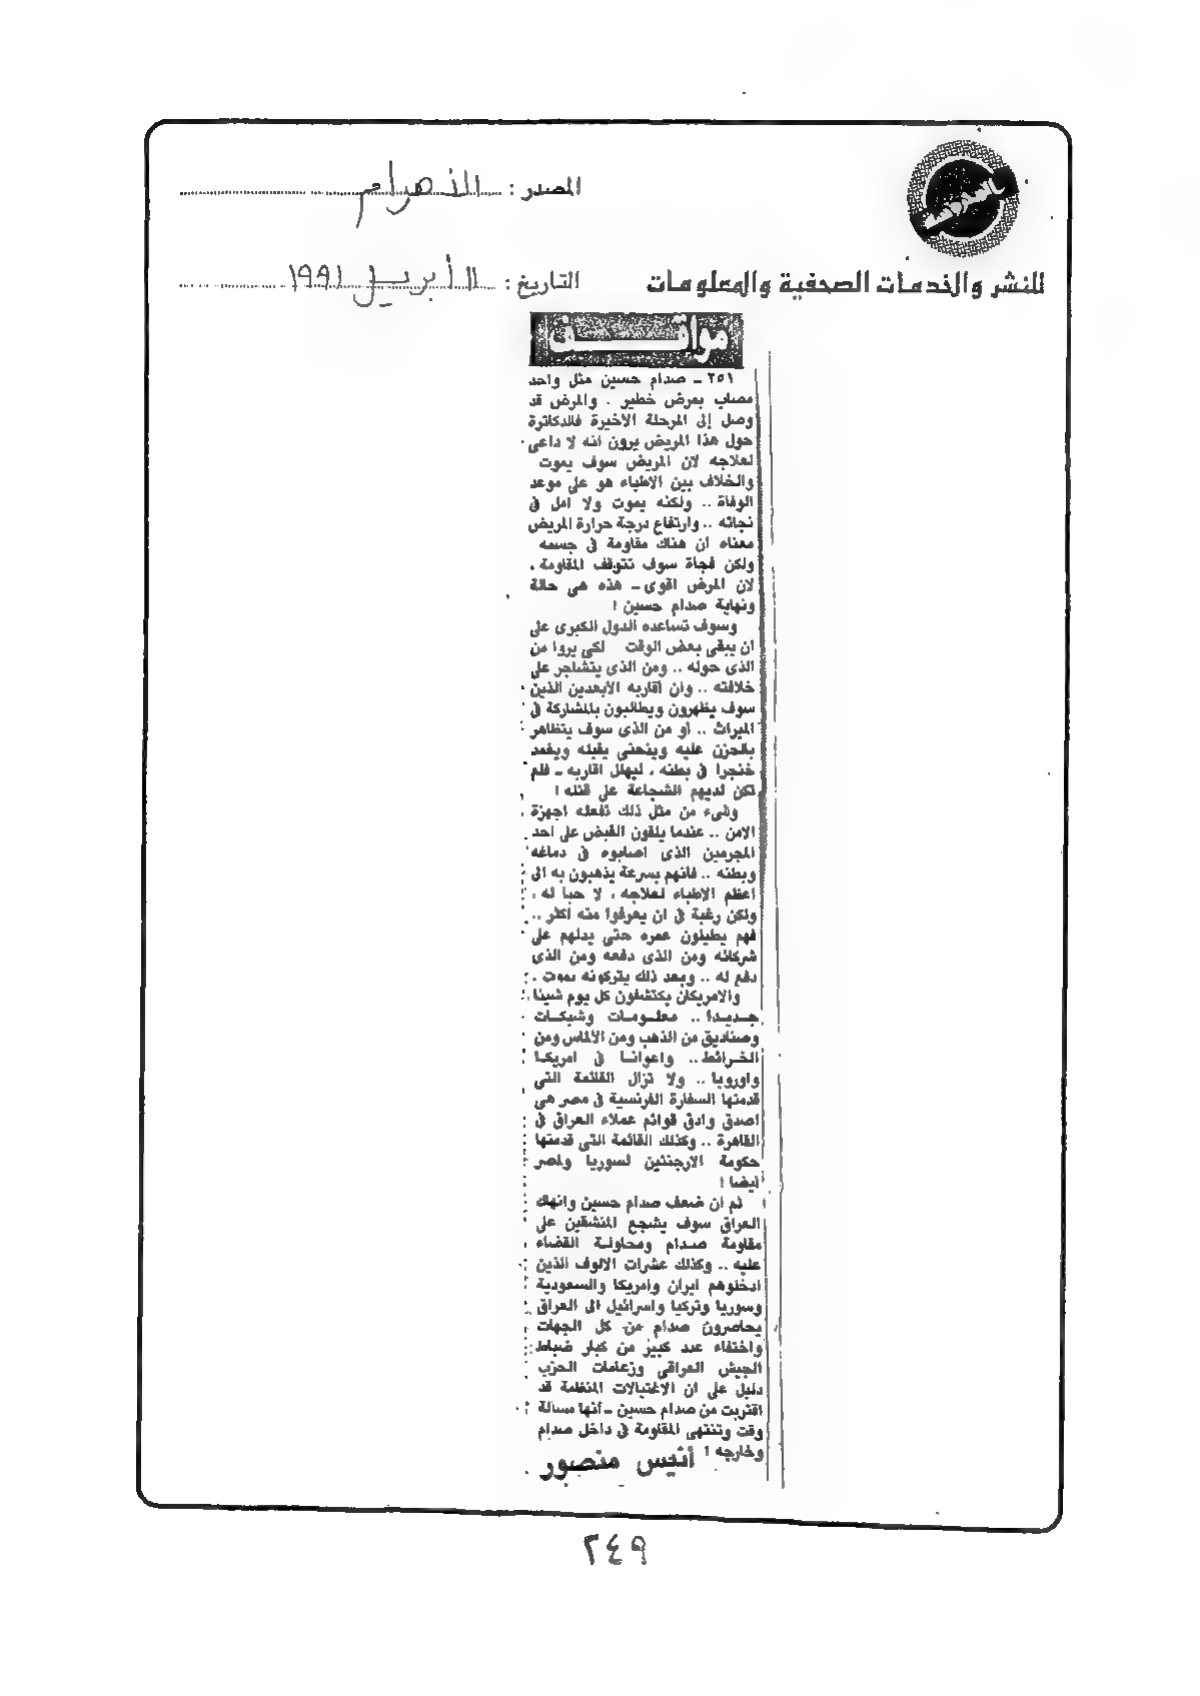 المصدر : الأهرام
للنشر والخدمات الصحفية والمعلومات
التاريخ : ١١ أبريل ١٩٩١
مواقف
٢٥١ ـ صدام حسين مثل واحد
مصاب بمرض خطير . والمرض قد
وصل إلى المرحلة الأخيرة فالدكاترة
حول هذا المريض يرون انه لا داعى
لعلاجه لان المريض سوف يموت
والخلاف بين الاطباء هو على موعد
الوفاة .. ولكنه يموت ولا امل فى
نجاته .. وارتفاع درجة حرارة المريض
معناه ان هناك مقاومة فى جسمه
ولكن فجاة سوف تتوقف المقاومة ،
لان المرض اقوى ـ هذه هى حالة
ونهاية صدام حسين !
وسوف تساعده الدول الكبرى على
ان يبقى بعض الوقت لكى يروا من
الذى حوله .. ومن الذى يتشاجر على
خلافته .. وان أقاربه الأبعدين الذين
سوف يظهرون ويطالبون بالمشاركة فى
الميراث .. أو من الذى سوف يتظاهر
بالحزن عليه وينحنى يقبله ويغمد
خنجرا فى بطنه ، ليهلل اقاربه ـ فلم
تكن لديهم الشجاعة على قتله !
وشىء من مثل ذلك تفعله اجهزة
الامن .. عندما يلقون القبض على احد
المجرمين الذى اصابوه فى دماغه
وبطنه .. فانهم بسرعة يذهبون به الى
اعظم الاطباء لعلاجه ، لا حبا له ،
ولكن رغبة فى ان يعرفوا منه أكثر ..
فهم يطيلون عمره حتى يدلهم على
شركائه ومن الذى دفعه ومن الذى
دفع له .. وبعد ذلك يتركونه يموت .
والامريكان يكتشفون كل يوم شيئا
جديدا .. معلومات وشبكات
وصناديق من الذهب ومن الألماس ومن
الخرائط .. واعوانا فى امريكا
واوروبا .. ولا تزال القائمة التى
قدمتها السفارة الفرنسية فى مصر هى
اصدق وادق قوائم عملاء العراق فى
القاهرة .. وكذلك القائمة التى قدمتها
حكومة الارجنتين لسوريا ولمصر
ايضا !
ثم ان ضعف صدام حسين وانهاك
العراق سوف يشجع المنشقين على
مقاومة صدام ومحاولة القضاء
عليه .. وكذلك عشرات الالوف الذين
ادخلوهم ايران وامريكا والسعودية
وسوريا وتركيا واسرائيل الى العراق
يحاصرون صدام من كل الجهات
واختفاء عدد كبير من كبار ضباط
الجيش العراقى وزعامات الحزب
دليل على ان الاغتيالات المنظمة قد
اقتربت من صدام حسين ـ أنها مسألة
وقت وتنتهى المقاومة فى داخل صدام
وخارجه !
أنيس منصور
٢٤٩